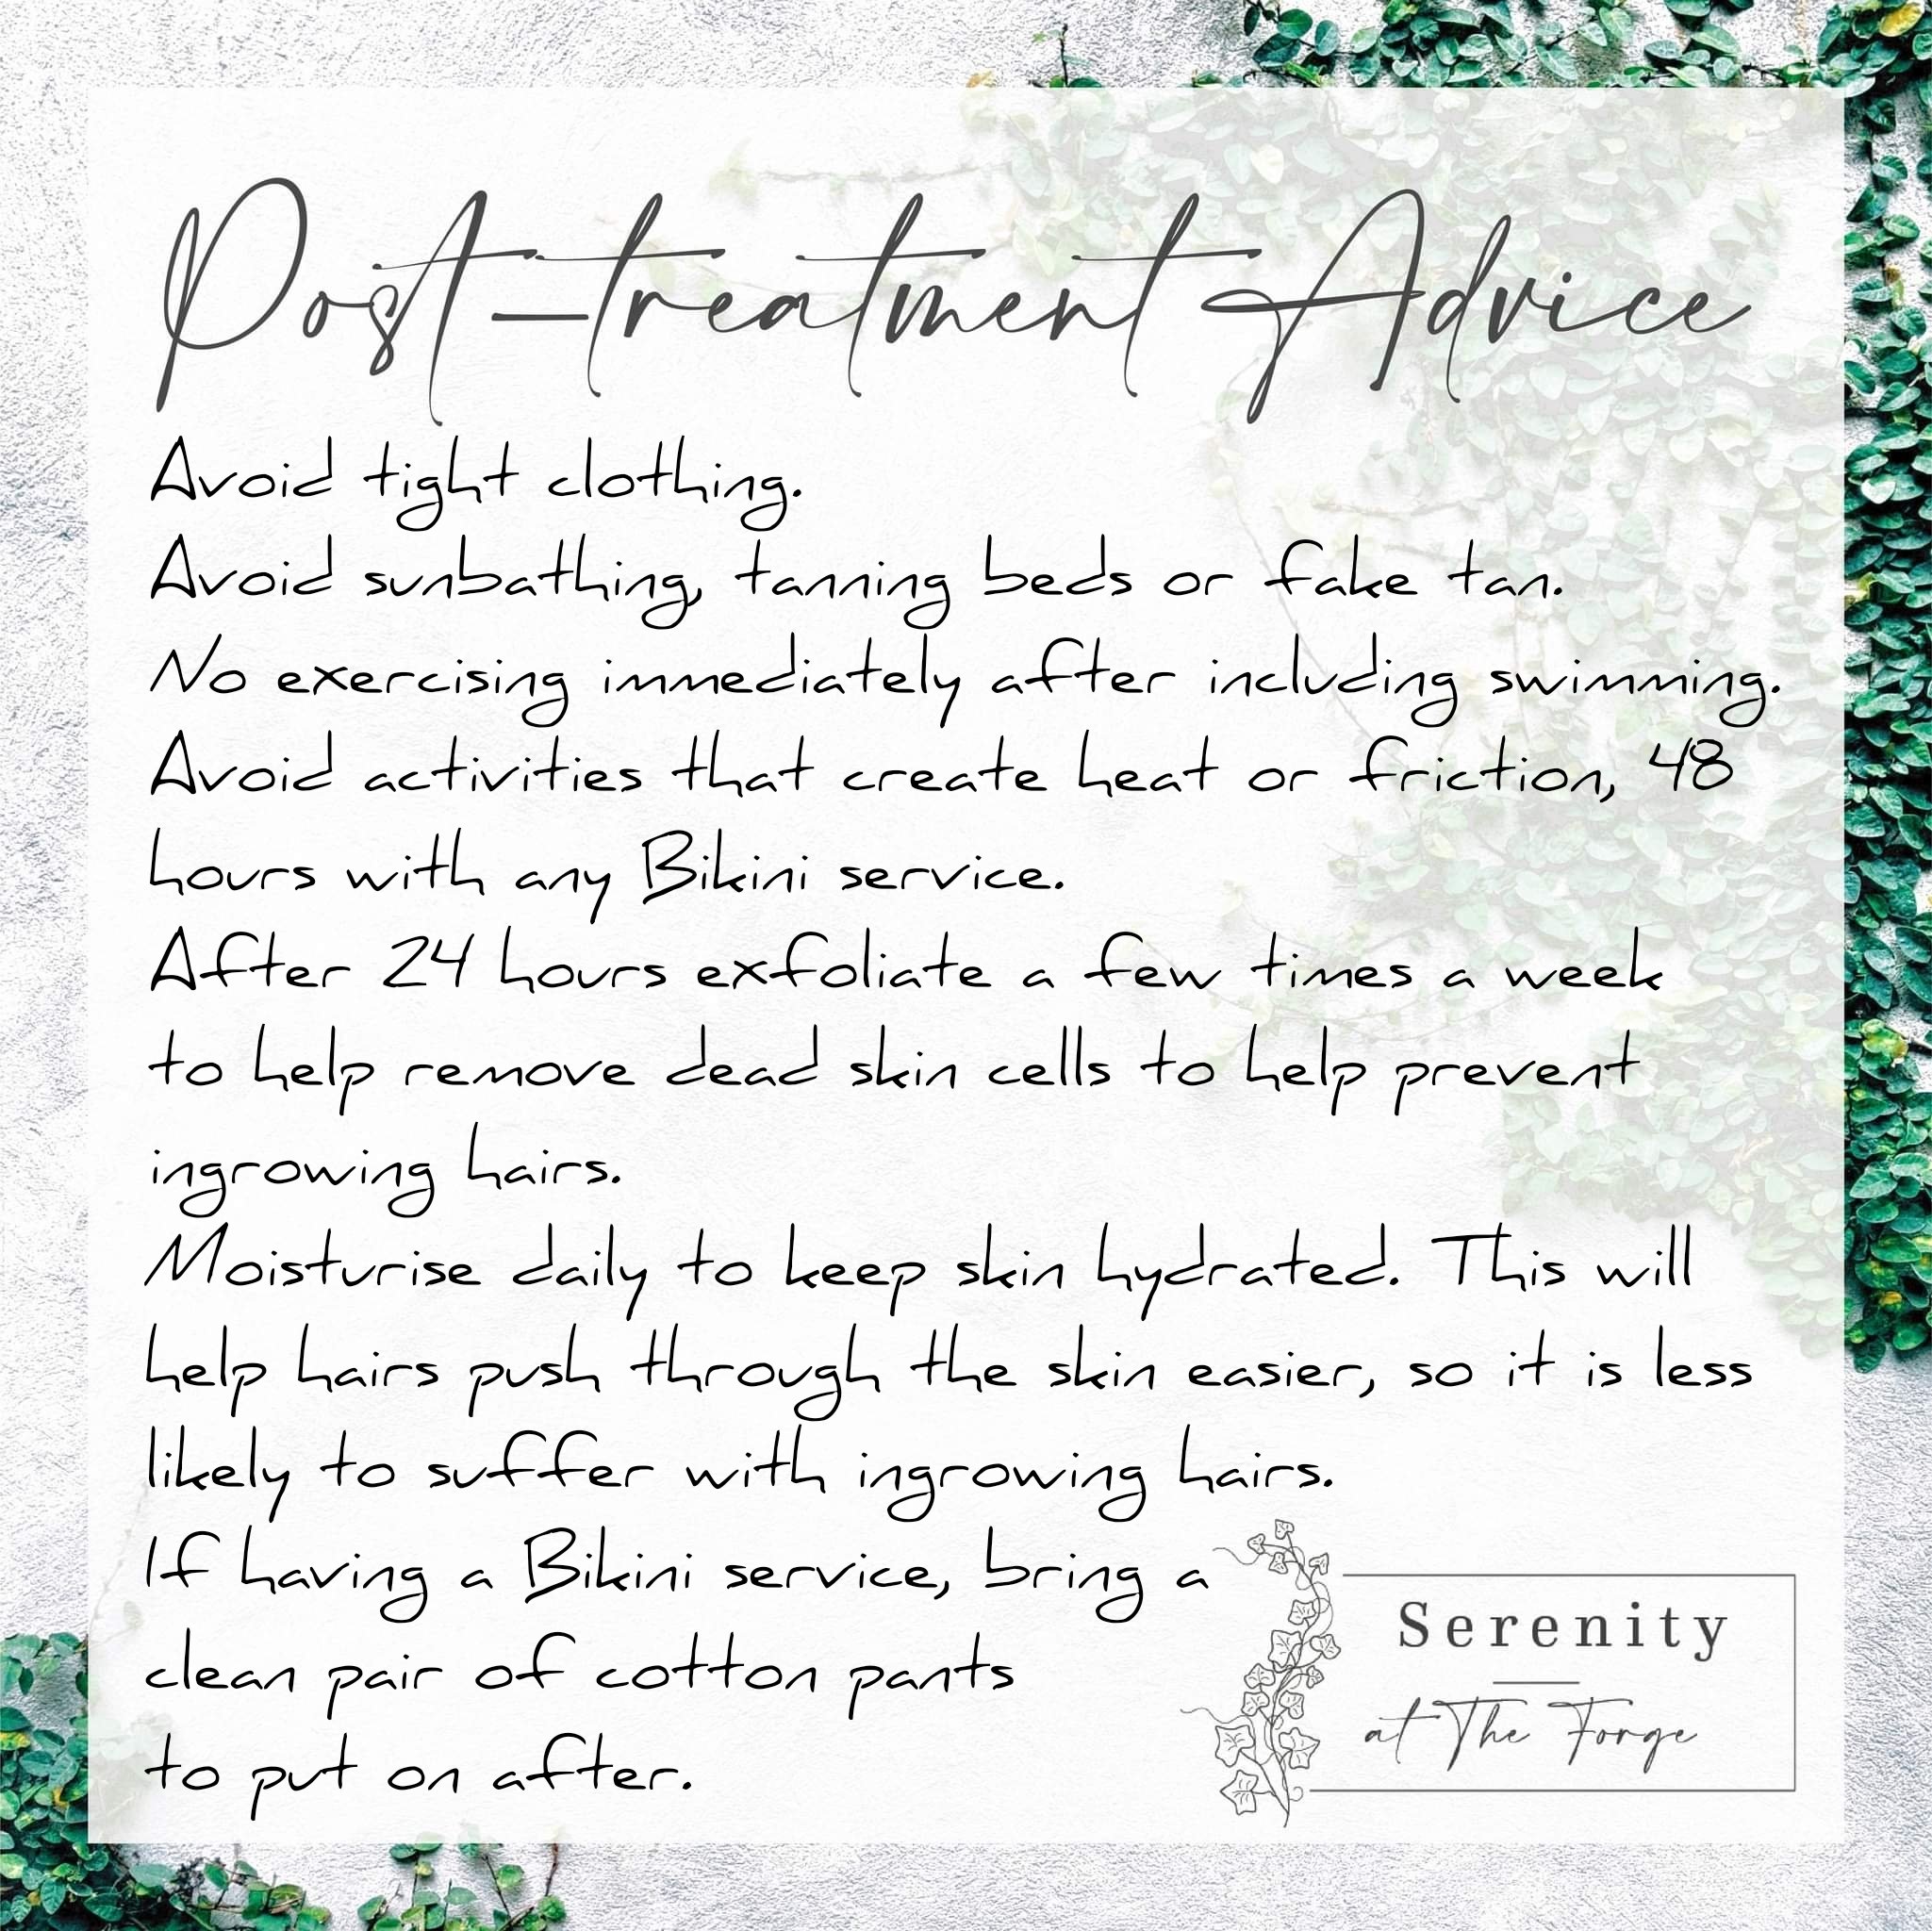 Post-treatment Advice
Avoid tight clothing.
Avoid sunbathing, tanning beds or fake tan.
No exercising immediately after including swimming.
Avoid activities that create heat or friction, 48
hours with any Bikini service.
After 24 hours exfoliate a few times a week
to help remove dead skin cells to help prevent
ingrowing hairs.
Moisturise daily to keep skin hydrated. This will
help hairs push through the skin easier, so it is less
likely to suffer with ingrowing hairs.
If having a Bikini service, bring a
clean pair of cotton pants
to put on after.
Serenity
at The Forge